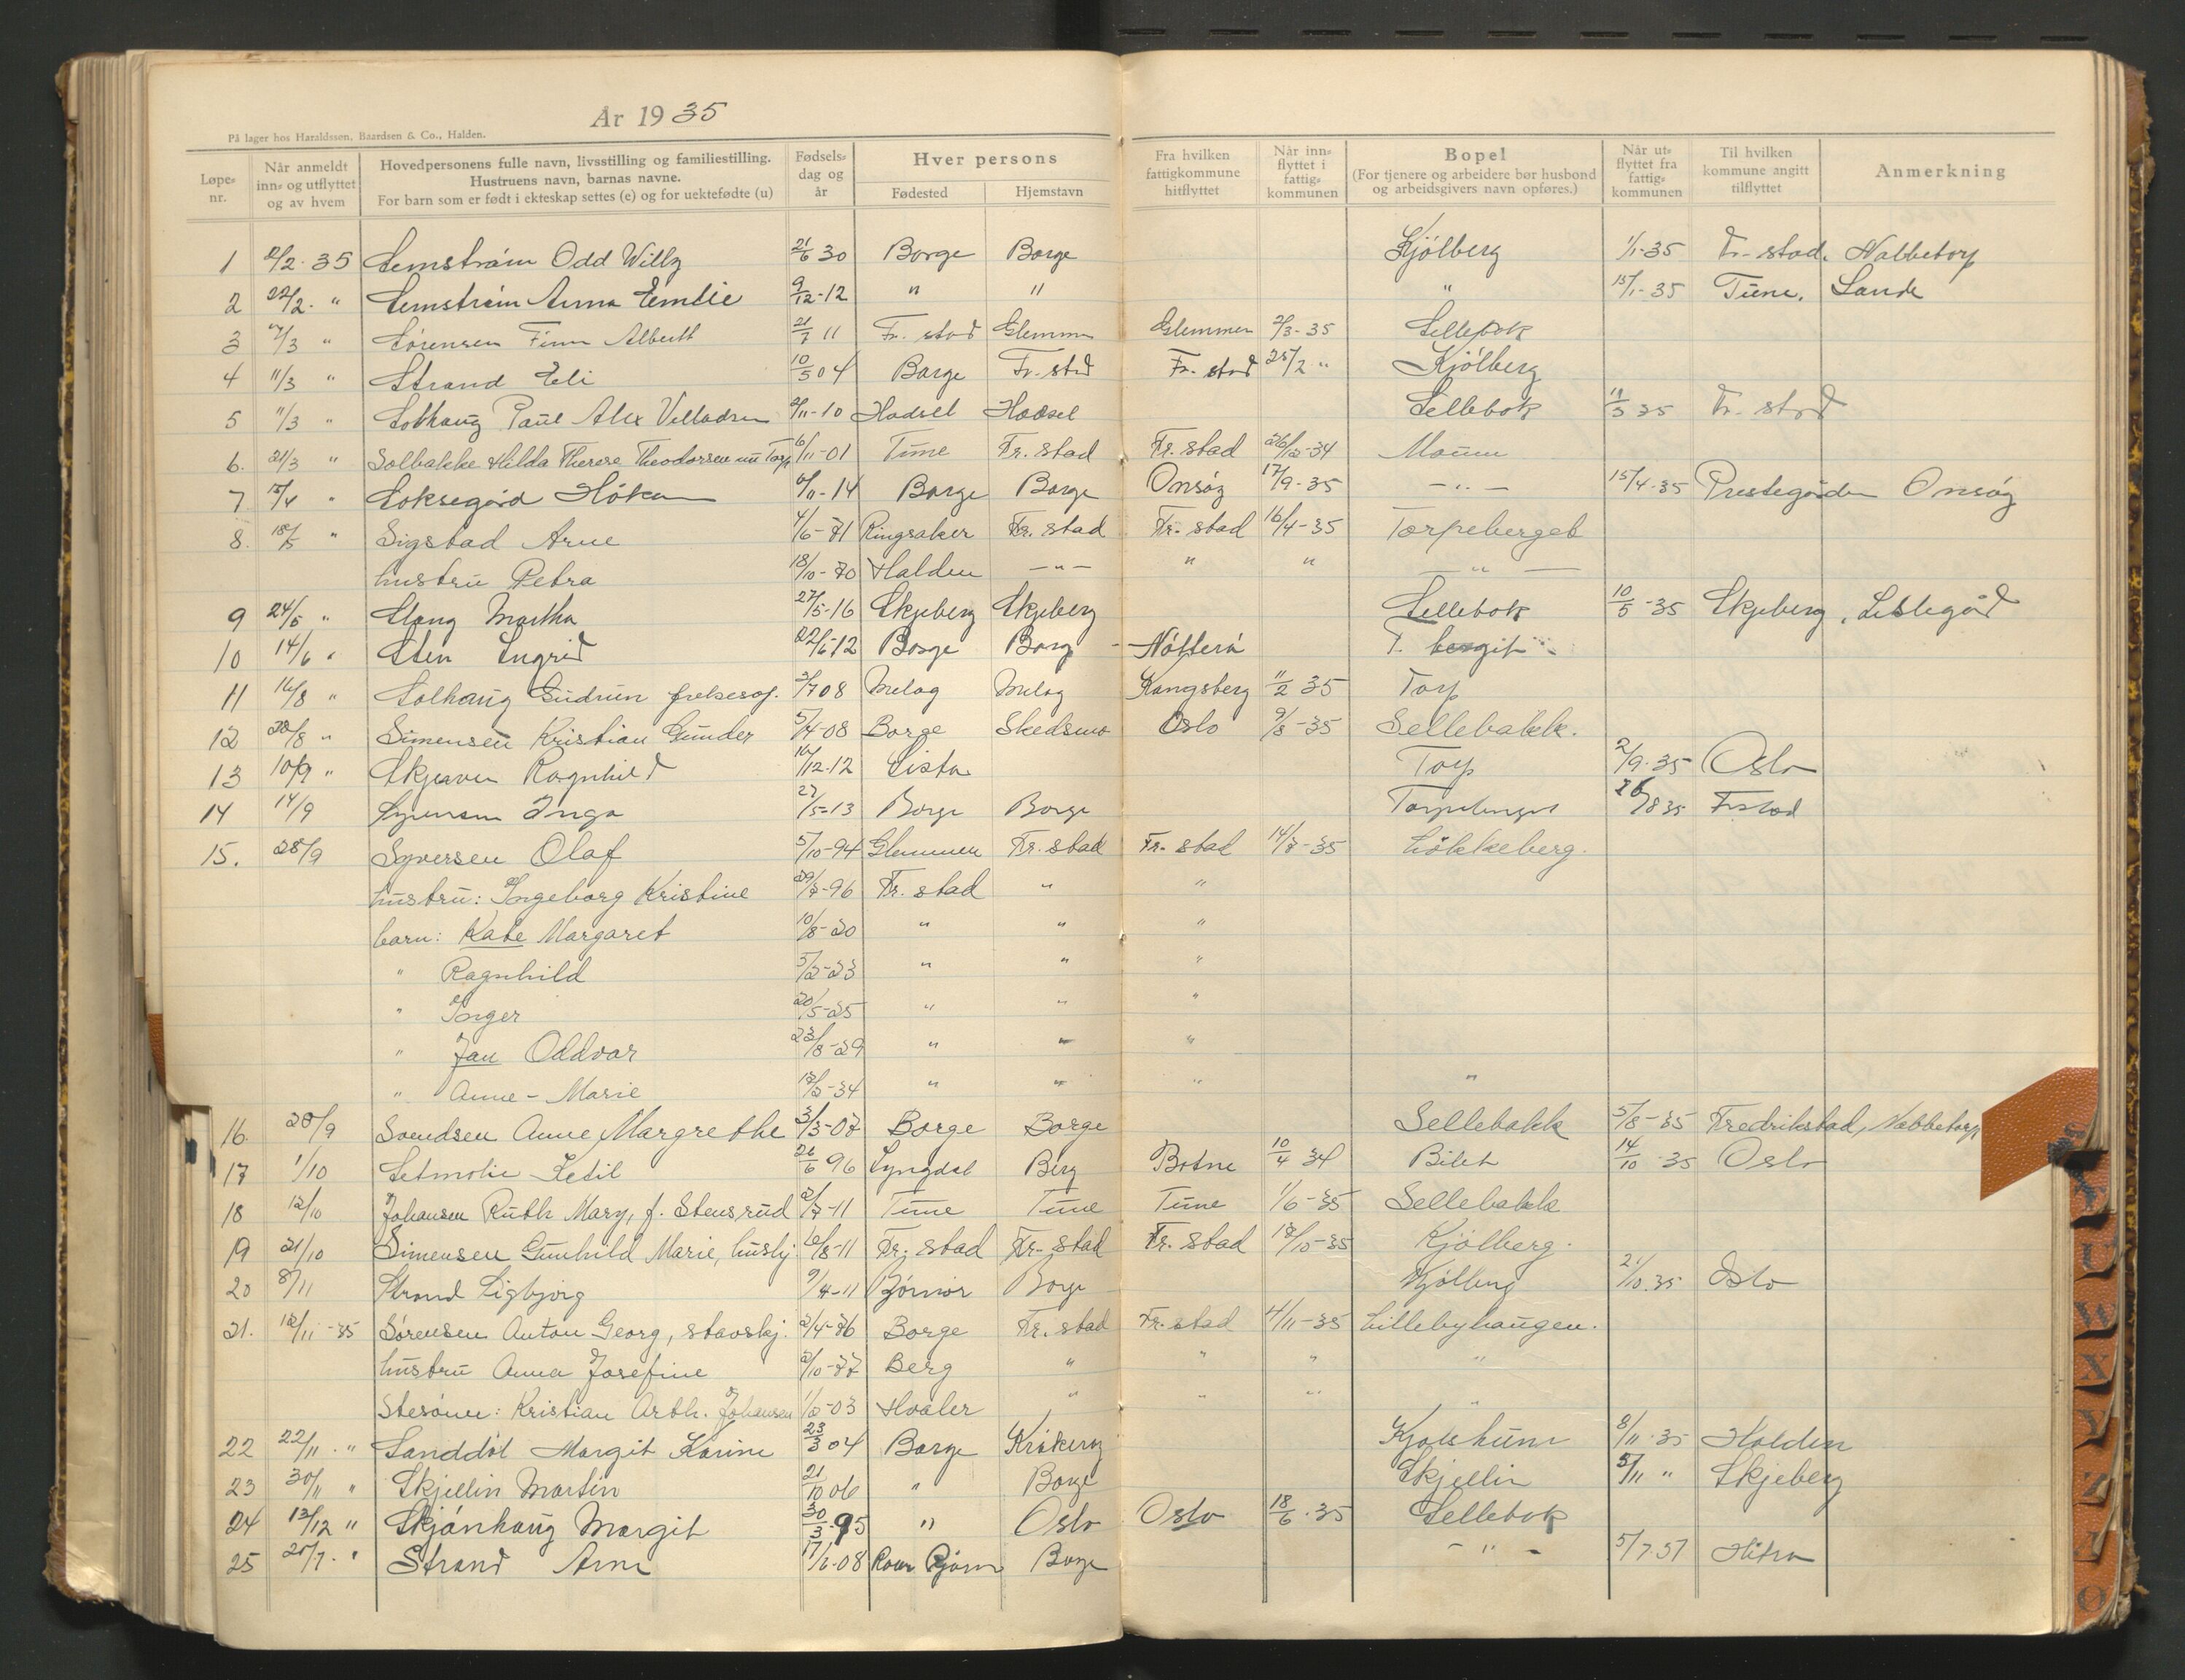 År 1935
På lager hos Haraldssen, Baardsen & Co., Halden.
Løpe-nr. Når anmeldt inn- og utflyttet og av hvem Hovedpersonens fulle navn, livsstilling og familiestilling. Hustruens navn, barnas navne. For barn som er født i ekteskap settes (e) og for uektefødte (u) Fødsels-dag og år Hver persons Fødested Hjemstavn Fra hvilken fattigkommune hitflyttet Når inn-flyttet i fattig-kommunen Bopel (For tjenere og arbeidere bør husbond og arbeidsgivers navn opføres.) Når ut-flyttet fra fattig-kommunen Til hvilken kommune angitt tilflyttet Anmerkning
1 2/2-35 Semstrøm Odd Willy 21/6 30 Borge Borge Kjølberg 1/1-35 Fr-stad. Nabbetorp
2 22/2- " Semstrøm Anna Emilie 9/12-12 " " " 15/1-35 Tune. Sande
3 /3 " Sørensen Finn Albert 21/7 11 Fr. stad Glemmen Glemmen 2/3-35 Sellebak
4 11/3 " Strand Eli 10/5 04 Borge Fr. stad Fr. stad 25/2 " Kjølberg
5 11/3 " Solhaug Paul Alex Villadsen /11-10 Hadsel Hadsel Sellebak 11/3 35 Fr. stad
6. 21/3 " Solbakke Hilda Therese Theodorsen 6/11-01 Tune Fr. stad Fr. stad 26/12-34 Moum
7 15/4 " Soksegård Håkon 6/11-14 Borge Borge Onsøy 17/9-35 - " - 15/4-35 Prestegården Onsøy
8. 18/5 " Sigstad Arne 4/6-71 Ringsaker Fr. stad Fr. stad 16/4-35 Torpeberget
hustru Petra 18/10-70 Halden - " - " " - " -
9 24/5 " Stang Martha 27/5-16 Skjeberg Skjeberg Sellebak 10/5-35 Skjeberg, Lislegård
10 14/6 " Sten Ingrid 22/6-12 Borge Borg Nøtterø T. berget
11 16/8 " Solhaug Gudrun frelsesof. 3/7 08 Meløy Meløy Kongsberg 11/2 35 Torp
12 20/8 " Simensen Kristian Gunder 5/4-08 Borge Skedsmo Oslo 9/8-35 Sellebakk.
13 10/9 " Skjerven Ragnhild 16/12-12 Lista Torp 2/9-35 Oslo
14 14/9 Syversen Inga 27/5-13 Borge Borge Torpeberget 26/8 35 Frstad
15. 28/9 Syversen Olaf 5/10-94 Glemmen Fr. stad Fr. stad 14/7-35 Løkkeberg.
hustru: Ingeborg Kristine 29/7-96 Fr. stad " "
barn: Kate Margaret 10/8-20 " " "
" Ragnhild 5/2-23 " " "
" Inger 20/5-25 " " "
" Jan Oddvar 23/8-29 " " "
" Anne-Marie 12/2-34 " " " "
16. 28/9 Svendsen Anne Margrethe 3/3-07 Borge Borge Sellebakk 5/8-35 Fredrikstad, Nabbetorp
17 1/10 Setmolie Ketil 26/6 96 Lyngdal Berg Botne 10/4 34 Bilet 14/10-35 Oslo
18 12/10 Johansen Ruth Mary, f. Stensrud 2/7-11 Tune Tune Tune 1/6-35 Sellebakk
19 21/10 Simensen Gunhild Marie, hushj. 6/8-11 Fr. stad Fr. stad Fr. stad 18/10-35 Kjølberg.
20 8/11 Strand Sigbjørg 9/4-11 Bjørnør Borge Kjølberg 2/10.35 Oslo
21. 12/11-35 Sørensen Anton Georg, 2/4-76 Borge Fr. stad Fr. stad 4/11-35 Lillebyhaugen.
hustru Anna Josefine 2/10-77 Berg " " " "
Stesønn: Kristian Arth. Johansen 1/2-03 Hvaler " " " "
22 22/11 " Sanddal Margit Karine 23/3 04 Borge Kråkerøy Kjølshum 8/11-35 Halden
23 30/11 " Skjellin Martin 21/10 06 " Borge Skjellin 5/11 " Skjeberg
24 13/12 " Skjønhaug Margit 30/3-95 " Oslo Oslo 18/6-35 Sellebak
25 25/7 " Strand Arne 17/6-08 Roan Bjørnør Borge - " - 5/7.51 Hitra